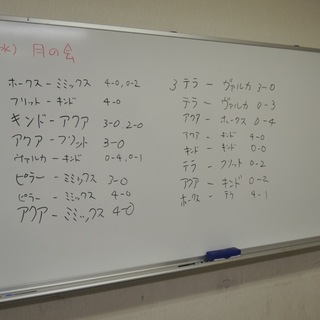 水) 月の会
ホークス - ミミックス 4-0, 0-2
フリット - キンド 4-0
キンド - アクア 3-0, 2-0
アクア - フリット 3-0
ヴァルカ - キンド 0-4, 0-1
ピラー - ミミックス 3-0
ピラー - ミミックス 4-0
アクア - ミミックス 4-0
3 テラ - ヴァルカ 3-0
テラ - ヴァルカ 0-3
アクア - ホークス 0-4
アクア - キンド 4-0
キンド - キンド 0-0
テラ - フリット 0-2
アクア - キンド 0-2
ホークス - テラ 4-1